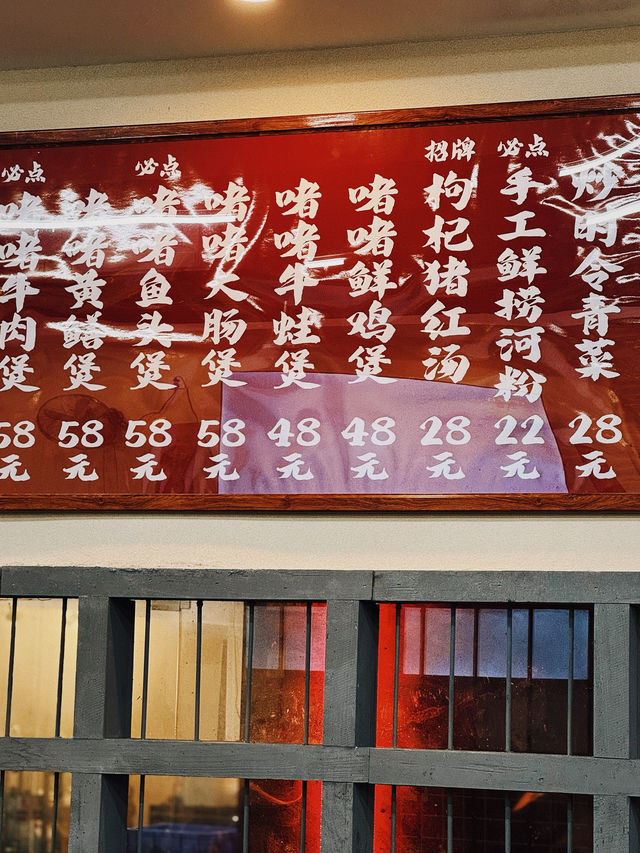 必点
啫啫牛肉煲
58元
啫啫黄鳝煲
58元
必点
啫啫鱼头煲
58元
啫啫大肠煲
58元
啫啫牛蛙煲
48元
啫啫鲜鸡煲
48元
招牌
枸杞猪红汤
28元
必点
手工鲜捞河粉
22元
炒时令青菜
28元